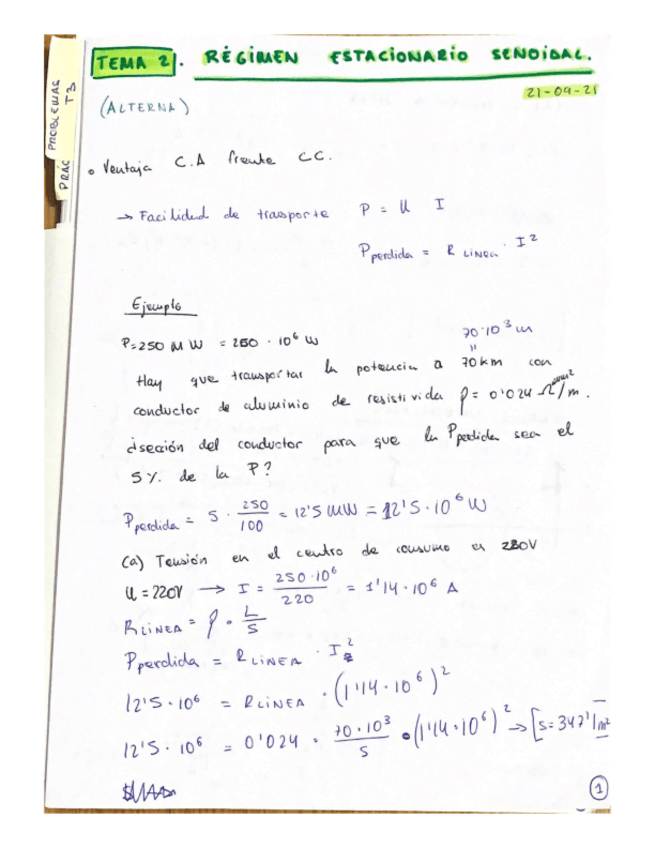 PROBLEMAS T3
PRÁC
TEMA 2. RÉGIMEN ESTACIONARIO SENOIDAL.
21-09-21
(ALTERNA)
• Ventaja C.A frente C.C.
→ Facilidad de transporte P = U I
P perdida = R LÍNEA · I²
Ejemplo
P=250 MW = 250 · 10⁶ W
70·10³ m
"
Hay que transportar la potencia a 70km con
conductor de aluminio de resistivida ρ = 0'024 Ω mm²/m.
¿sección del conductor para que la Pperdida sea el
5% de la P?
Pperdida = 5 · 250/100 = 12'5 MW = 12'5 · 10⁶ W
(a) Tensión en el centro de consumo es 220V
U = 220V → I = 250·10⁶/220 = 1'14 · 10⁶ A
RLÍNEA = ρ · L/S
Pperdida = RLÍNEA · I²
12'5 · 10⁶ = RLÍNEA · (1'14 · 10⁶)²
12'5 · 10⁶ = 0'024 · 70·10³/S · (1'14·10⁶)² → [S=347'1 m²
1